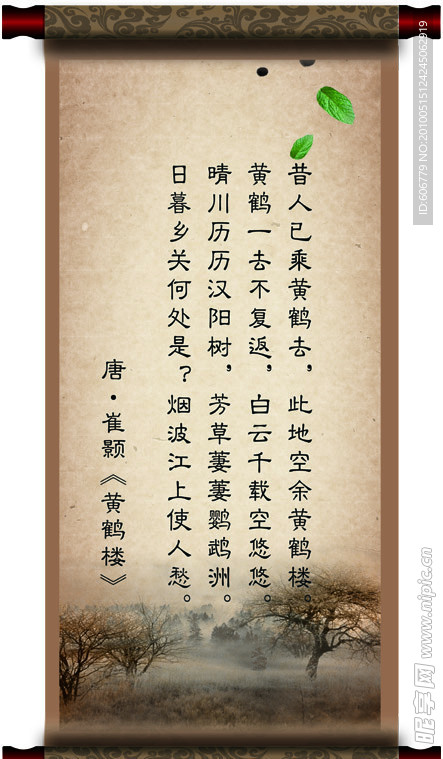 昔人已乘黄鹤去，此地空余黄鹤楼。
黄鹤一去不复返，白云千载空悠悠。
晴川历历汉阳树，芳草萋萋鹦鹉洲。
日暮乡关何处是？烟波江上使人愁。
唐·崔颢《黄鹤楼》
ID:606779 NO:20100515124245062919
昵享网 www.nipic.cn